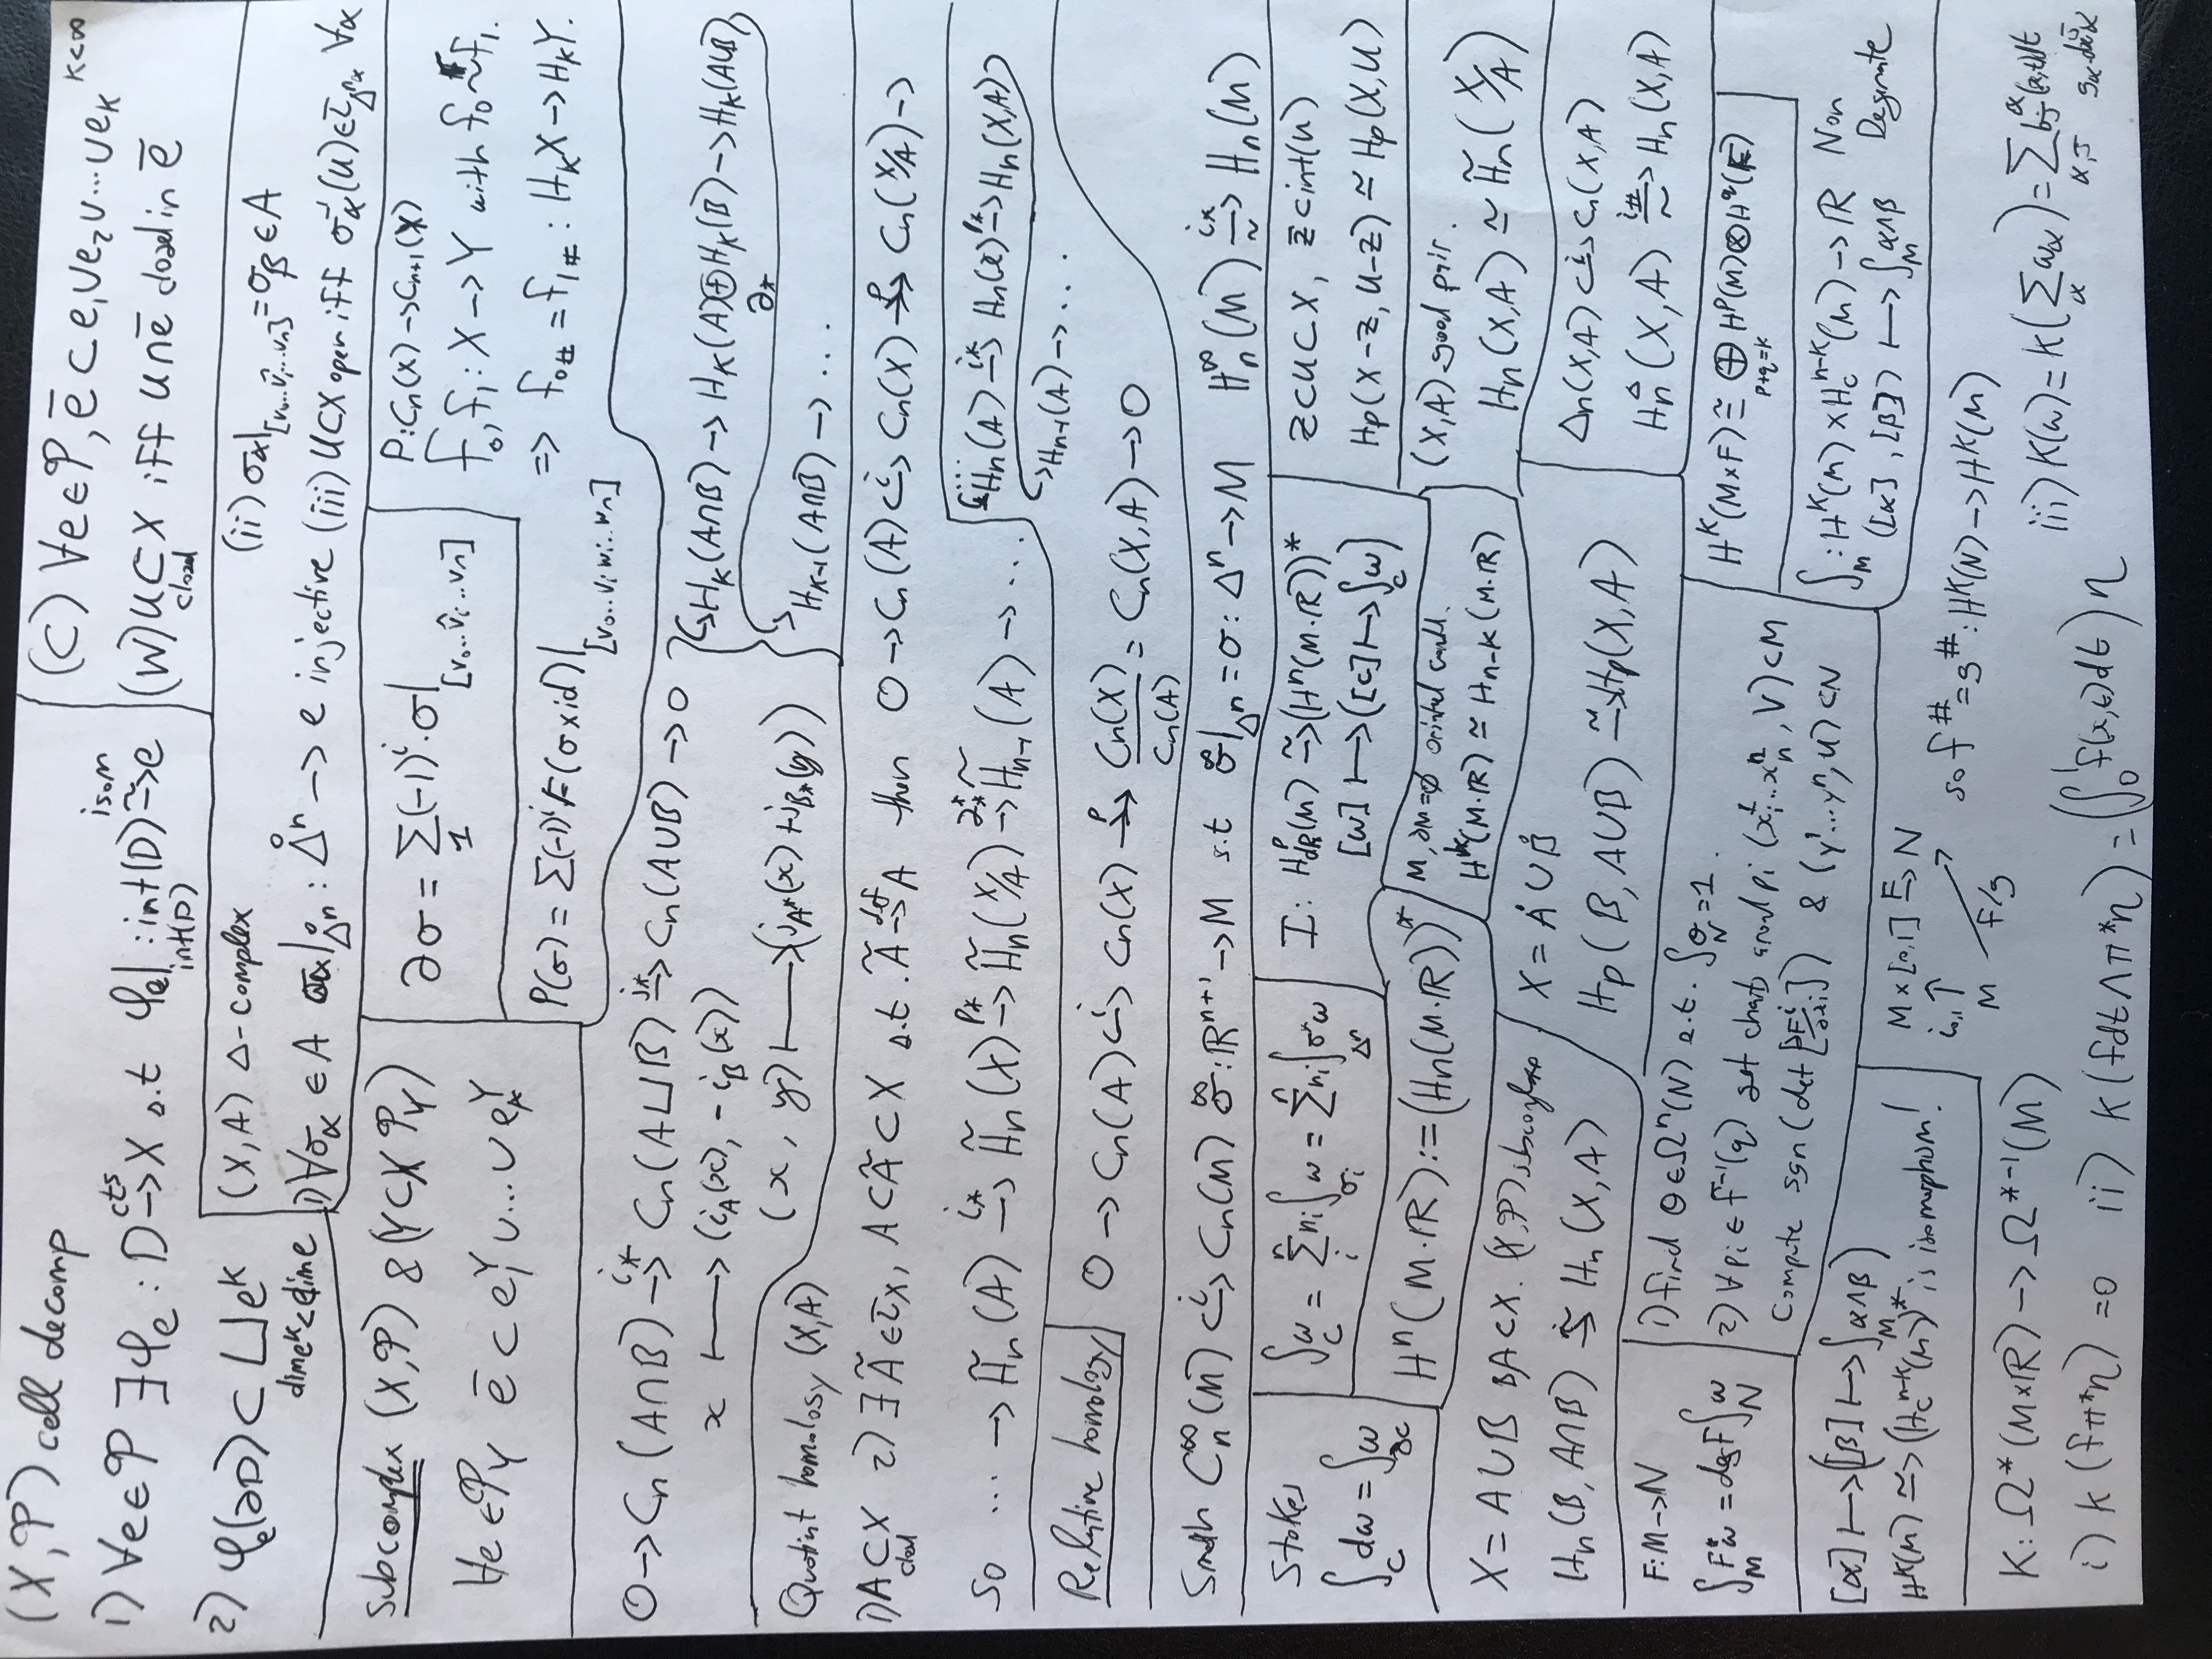 (X, 𝒫) cell decomp
1) ∀e∈𝒫 ∃φₑ : D →^{cts} X s.t φₑ|_{int(D)} : int(D) ⥲^{isom} e
2) φₑ(∂D) ⊂ ⊔e^k_{dim e^k < dim e}
(C) ∀e∈𝒫, ē ⊂ e₁∪e₂∪...∪e_K K<∞
(W) U ⊂_{closed} X iff U∩ē closed in ē
(X,A) Δ-complex
1) ∀σ_α ∈ A σ_α|_{Δ̊ⁿ} : Δ̊ⁿ → e injective
(ii) σ_α|_{[v₀..v̂ᵢ...vₙ]} = σ_β ∈ A
(iii) U⊂X open iff σ_α⁻¹(U) ∈ τ_{Δ^{n_α}} ∀α
Subcomplex (X,𝒫) & (Y⊂X 𝒫_Y)
∀e ∈𝒫_Y ē ⊂ e₁^Y ∪...∪ e_K^Y
∂σ = Σ_1 (-1)^i · σ|_{[v₀..v̂ᵢ..vₙ]}
P(σ) = Σ(-1)^i F(σ×id)|_{[v₀..vᵢ wᵢ..wₙ]}
P: Cₙ(X) → Cₙ₊₁(X)
f₀, f₁ : X → Y with f₀ ~ f₁.
=> f₀# = f₁# : H_K X → H_K Y.
0 → Cₙ(A∩B) →^{i*} Cₙ(A⊔B) →^{j*} Cₙ(A∪B) → 0
x ⟼ (i_A(x), -i_B(x))
(x, y) ⟼ (j_{A*}(x) + j_{B*}(y))
↪ H_K(A∩B) → H_K(A)⊕H_K(B) → H_K(A∪B)
∂*
↪ H_{K-1}(A∩B) → ...
Quotint homology (X,A)
1) A ⊂_{closed} X 2) ∃Ã ∈τ_X, A⊂Ã⊂X s.t. Ã →^{def} A then 0 → Cₙ(A) ↪^{i} Cₙ(X) ↠^{p} Cₙ(X/A) →
so ... → H̃ₙ(A) →^{i*} H̃ₙ(X) →^{p*} H̃ₙ(X/A) →^{∂*} H̃ₙ₋₁(A) → ...
↪ Hₙ(A) →^{i*} Hₙ(X) →^{p*} Hₙ(X,A)
↪ Hₙ₋₁(A) → ...
Relative homology 0 → Cₙ(A) ↪^{i} Cₙ(X) ↠^{p} Cₙ(X)/Cₙ(A) = Cₙ(X,A) → 0
Smooth Cₙ^∞(M) ↪^{i} Cₙ(M) σ^∞ : ℝⁿ⁺¹ → M s.t σ^∞|_{Δⁿ} = σ : Δⁿ → M Hₙ^∞(M) ⥲^{i*} Hₙ(M)
Stokes
∫_C dω = ∫_{∂C} ω
∫_C ω = Σ_i^n nᵢ ∫_{σᵢ} ω = Σ^n nᵢ ∫_{Δⁿ} σ*ω
I : H^p_{dR}(M) ⥲ (Hⁿ(M·ℝ))*
[ω] ⟼ ([c] ⟼ ∫_c ω)
Z⊂U⊂X, Z̄⊂int(U)
Hp(X-Z, U-Z) ≃ Hp(X,U)
Hⁿ(M·ℝ) := (Hₙ(M·ℝ))*
M, ∂M=∅
H^K(M·ℝ) ≃ H_{n-K}(M·ℝ)
(X,A) good pair.
Hₙ(X,A) ≃ H̃ₙ(X/A)
X = A∪B BA⊂X. (X,𝒫) subcomplexes
Hₙ(B, A∩B) ⥲ Hₙ(X,A)
X = Å∪B̊
Hp(B, A∪B) ⥲ Hp(X,A)
Δₙ(X,A) ↪^{i} Cₙ(X,A)
Hₙ^Δ(X,A) ⥲^{i#} Hₙ(X,A)
F: M → N
∫_M F*ω = deg F ∫_N ω
1) find θ∈Ωⁿ(N) s.t. ∫_N θ = 1.
2) ∀pᵢ ∈ f⁻¹(q) get charts around pᵢ (xᵢ¹..xₙⁿ, V) ⊂M
Compute sgn(det[∂Fⁱ/∂xᵢ]) & (y¹...yⁿ, U) ⊂N
H^K(M×F) ≅ ⊕_{p+q=K} H^p(M)⊗H^q(F)
∫_M : H^K(M) × H_c^{n-K}(M) → ℝ Non
([α],[β]) ⟼ ∫_M α∧β Degenrate
[α] ⟼ ([β] ⟼ ∫_M α∧β)
H^K(M) ⥲ (H_c^{n-K}(M))* is isomorphism!
M × [0,1] →^{F} N
i₀,₁ ↑
M f/g
so f^# = g^# : H^K(N) → H^K(M)
K : Ω*(M×ℝ) → Ω*⁻¹(M)
i) K(fπ*η) = 0 ii) K(fdt∧π*η) = (∫₀¹ f(x,t)dt) η
iii) K(ω) = K(Σ_α ω_α) = Σ_{α,J} b_J^α(x,t)dt
g_α dx_α^J